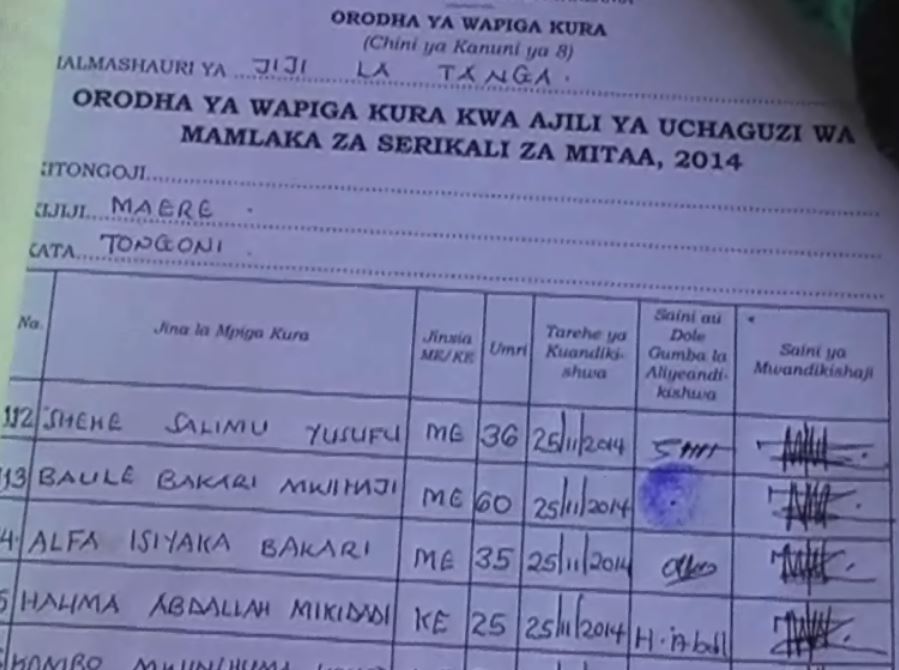 ORODHA YA WAPIGA KURA
(Chini ya Kanuni ya 8)
IALMASHAURI YA JIJI LA TANGA.
ORODHA YA WAPIGA KURA KWA AJILI YA UCHAGUZI WA
MAMLAKA ZA SERIKALI ZA MITAA, 2014
KITONGOJI
KIJIJI MAERE
KATA TONGONI
Na. Jina la Mpiga Kura Jinsia ME/KE Umri Tarehe ya Kuandiki-shwa Saini au Dole Gumba la Aliyeandi-kishwa Saini ya Mwandikishaji
112 SHEHE SALIMU YUSUFU ME 36 25/11/2014
113 BAULE BAKARI MWIHAJI ME 60 25/11/2014
4. ALFA ISIYAKA BAKARI ME 35 25/11/2014
5 HALIMA ABDALLAH MIKIDADI KE 25 25/11/2014 H.Abdl
KOMBO